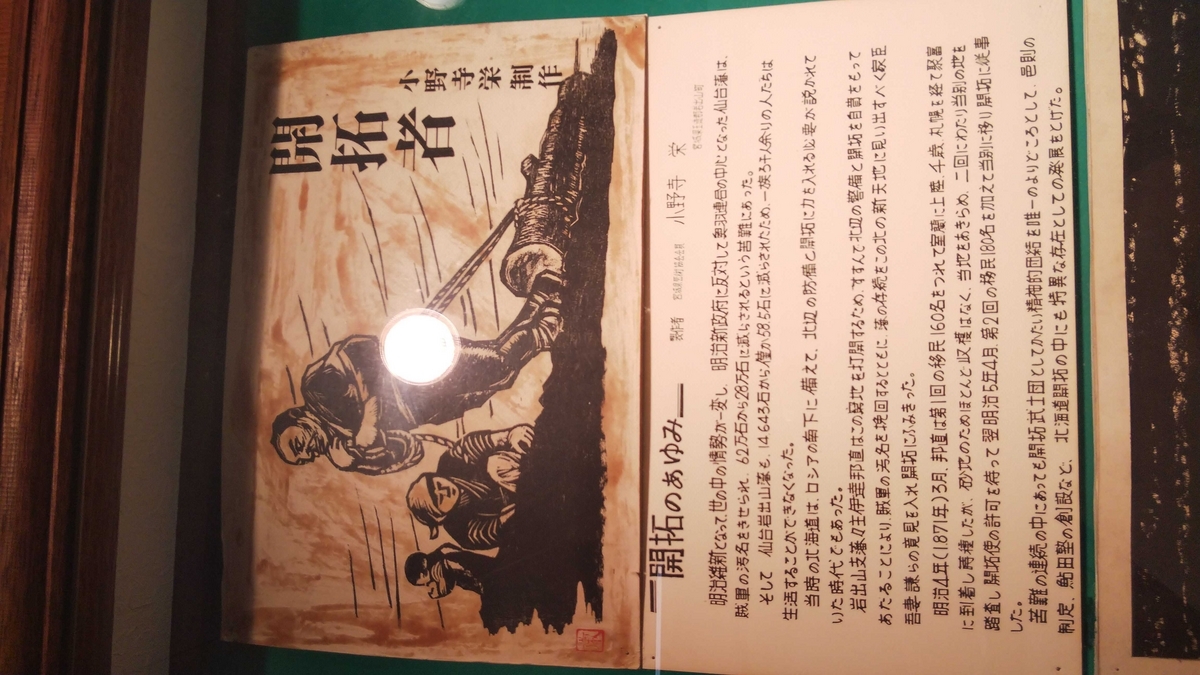 開拓者
小野寺栄制作
開拓のあゆみ
製作者 小野寺 栄
明治維新となって、世の中の情勢が一変し、明治新政府に反対して奥羽連合の中心となった仙台藩は、
賊軍の汚名をきせられ、62万石から28万石に減らされるという苦難にあった。
そして、仙台岩出山藩も、14643石から僅か58.5石に減らされたため、一族ろう千人余りの人たちは
生活することができなくなった。
当時の北海道は、ロシアの南下に備えて、北辺の防備と開拓に力を入れる必要が説かれて
いた時代でもあった。
岩出山支藩々主伊達邦直はこの窮地を打開するため、すすんで北辺の警備と開拓を自費をもって
あたることにより、賊軍の汚名を挽回するとともに、藩の存続をこの北の新天地に見い出すべく家臣
吾妻謙らの意見を入れ開拓にふみきった。
明治4年(1871年)3月、邦直は第1回の移民160名をつれて室蘭に上陸、千歳、札幌を経て聚富
に到着し蒔種したが、砂地のためほとんど収穫はなく、当地をあきらめ、二回にわたり当別の地を
踏査し開拓使の許可を待って翌明治5年4月第2回の移民180名を加えて当別に移り開拓に従事
した。
苦難の連続の中にあっても開拓武士団としてかたい精神的団結を唯一のよりどころとして、邑則の
制定、鮎田塾の創設など、北海道開拓の中にも特異な存在としての発展をとげた。